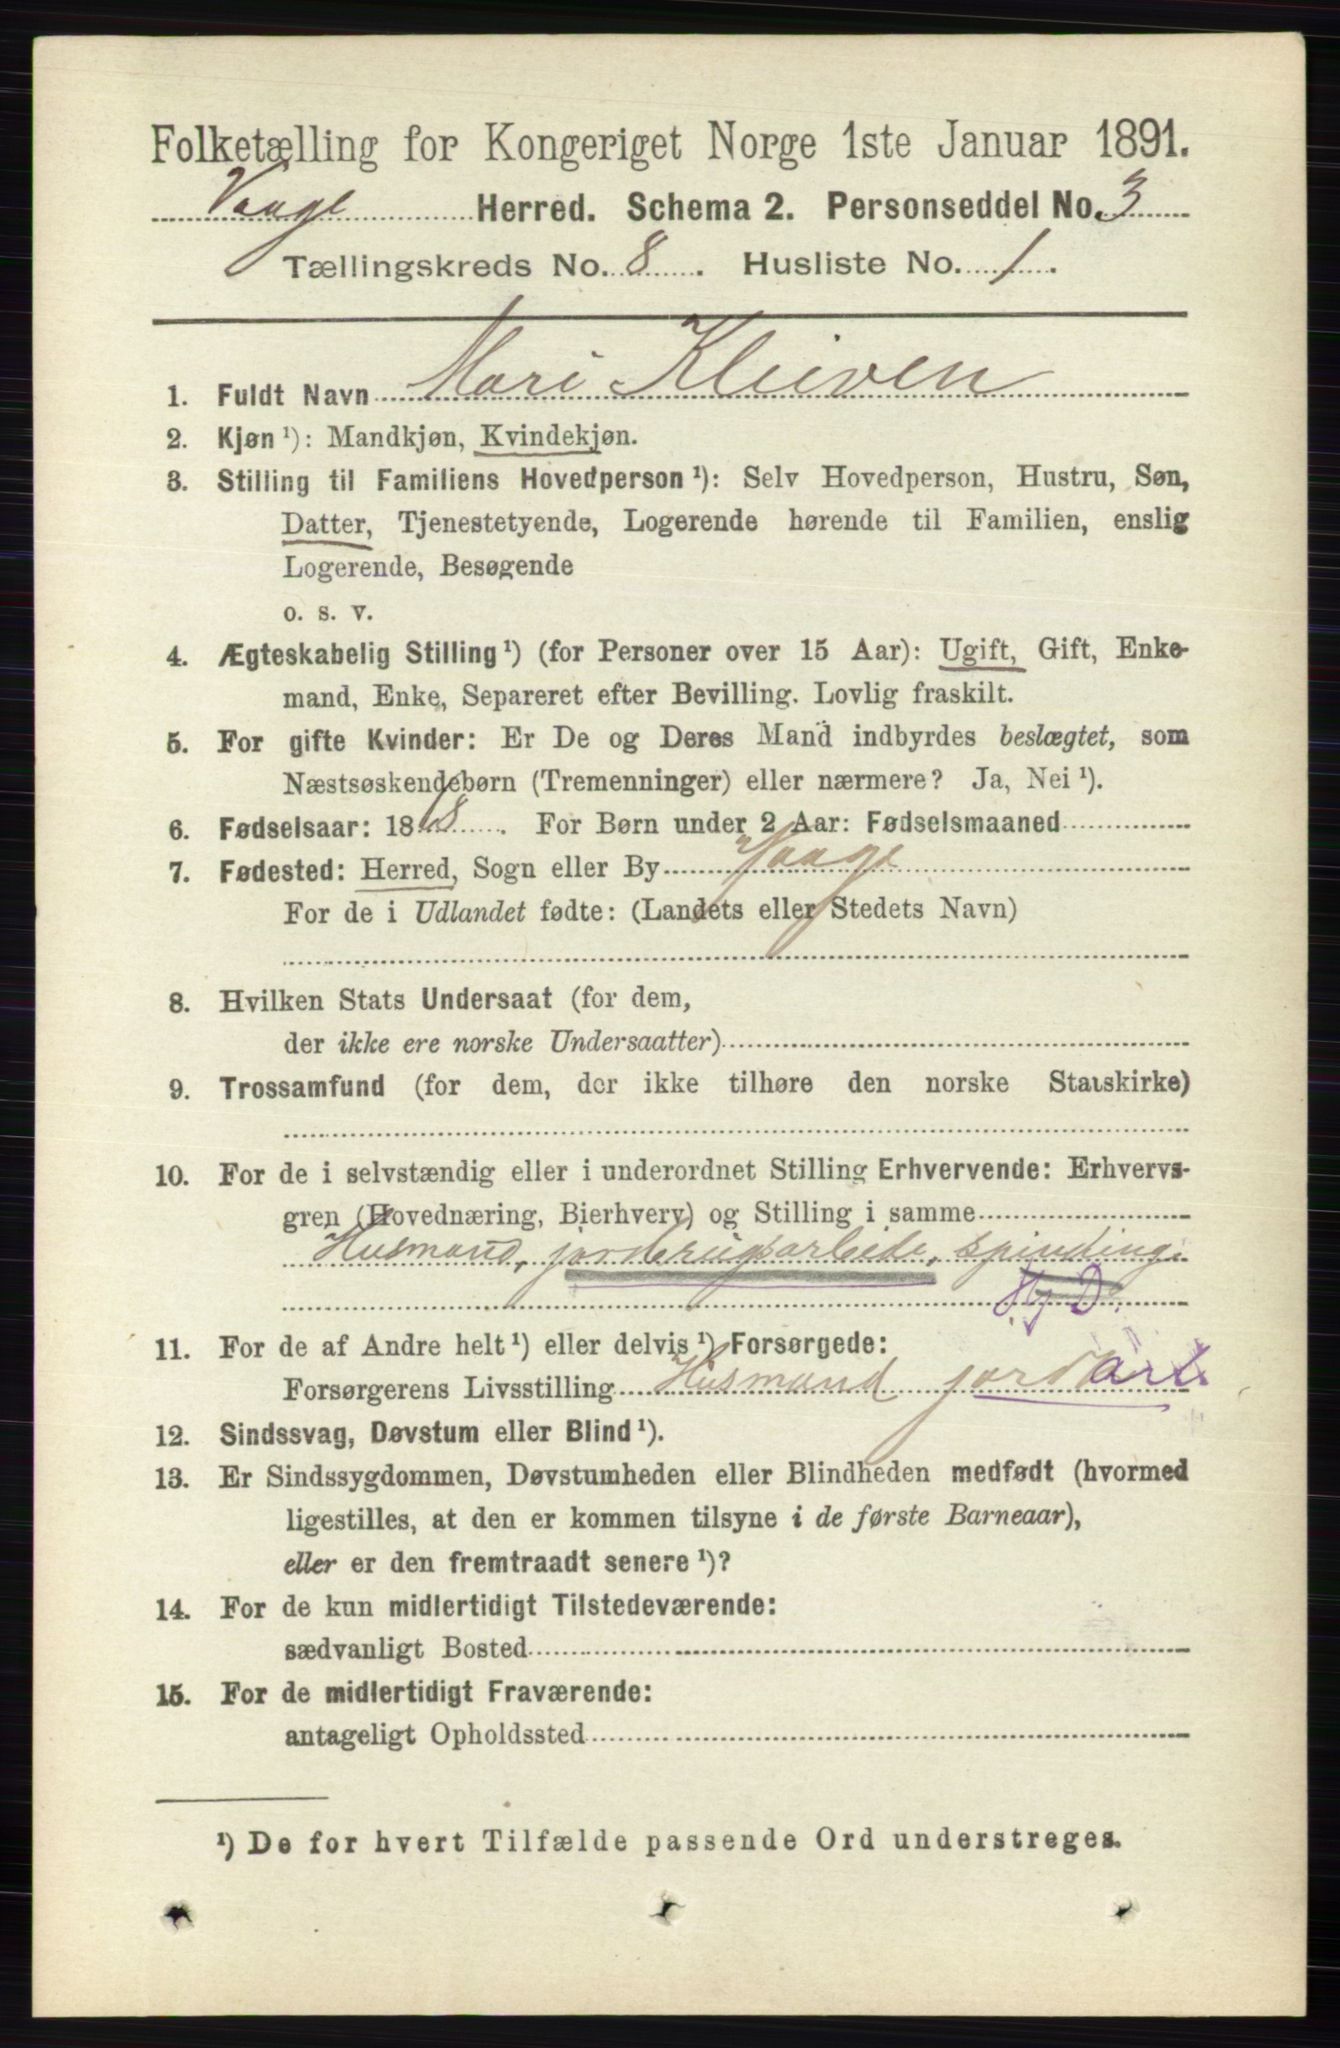 Folketælling for Kongeriget Norge 1ste Januar 1891.
Vaage Herred. Schema 2. Personseddel No. 3
Tællingskreds No. 8. Husliste No. 1.
1. Fuldt Navn Mari Kleiven
2. Kjøn ¹): Mandkjøn, Kvindekjøn.
3. Stilling til Familiens Hovedperson ¹): Selv Hovedperson, Hustru, Søn,
Datter, Tjenestetyende, Logerende hørende til Familien, enslig
Logerende, Besøgende
o. s. v.
4. Ægteskabelig Stilling ¹) (for Personer over 15 Aar): Ugift, Gift, Enke-
mand, Enke, Separeret efter Bevilling. Lovlig fraskilt.
5. For gifte Kvinder: Er De og Deres Mand indbyrdes beslægtet, som
Næstsøskendebørn (Tremenninger) eller nærmere? Ja, Nei ¹).
6. Fødselsaar: 1868. For Børn under 2 Aar: Fødselsmaaned
7. Fødested: Herred, Sogn eller By Vaage
For de i Udlandet fødte: (Landets eller Stedets Navn)
8. Hvilken Stats Undersaat (for dem,
der ikke ere norske Undersaatter)
9. Trossamfund (for dem, der ikke tilhøre den norske Statskirke)
10. For de i selvstændig eller i underordnet Stilling Erhvervende: Erhvervs-
gren (Hovednæring, Bierhverv) og Stilling i samme
Husmand, jordbrugsarbeide, spinding.
D.
11. For de af Andre helt ¹) eller delvis ¹) Forsørgede:
Forsørgerens Livsstilling Husmand jord
12. Sindssvag, Døvstum eller Blind ¹).
13. Er Sindssygdommen, Døvstumheden eller Blindheden medfødt (hvormed
ligestilles, at den er kommen tilsyne i de første Barneaar),
eller er den fremtraadt senere ¹)?
14. For de kun midlertidigt Tilstedeværende:
sædvanligt Bosted
15. For de midlertidigt Fraværende:
antageligt Opholdssted
¹) De for hvert Tilfælde passende Ord understreges.